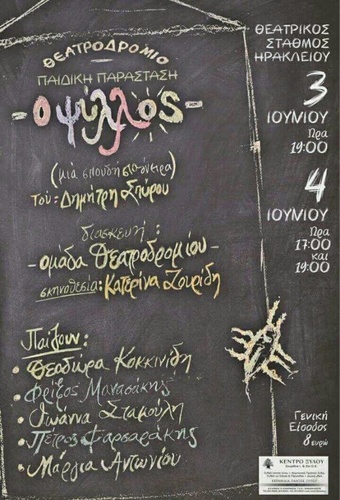 ΘΕΑΤΡΟΔΡΟΜΙΟ
ΠΑΙΔΙΚΗ ΠΑΡΑΣΤΑΣΗ
- Ο ΨΥΛΛΟΣ -
Του: Δημήτρη Σπύρου
διασκευή:
- ομάδα Θεατροδρομίου -
σκηνοθεσία: Κατερίνα Ζουρίδη
Παίζουν:
• Θεοδώρα Κοκκινίδη
• Φρίξος Μανασάκης
• Ιωάννα Σταμούλη
• Πέτρος Φαρσαράκης
• Μάργια Αντωνίου
ΘΕΑΤΡΙΚΟΣ
ΣΤΑΘΜΟΣ
ΗΡΑΚΛΕΙΟΥ
3
ΙΟΥΝΙΟΥ
Ώρα
19:00
4
ΙΟΥΝΙΟΥ
Ώρα
17:00
και
19:00
Γενική
Είσοδος
8 ευρώ
ΚΕΝΤΡΟ ΞΥΛΟΥ